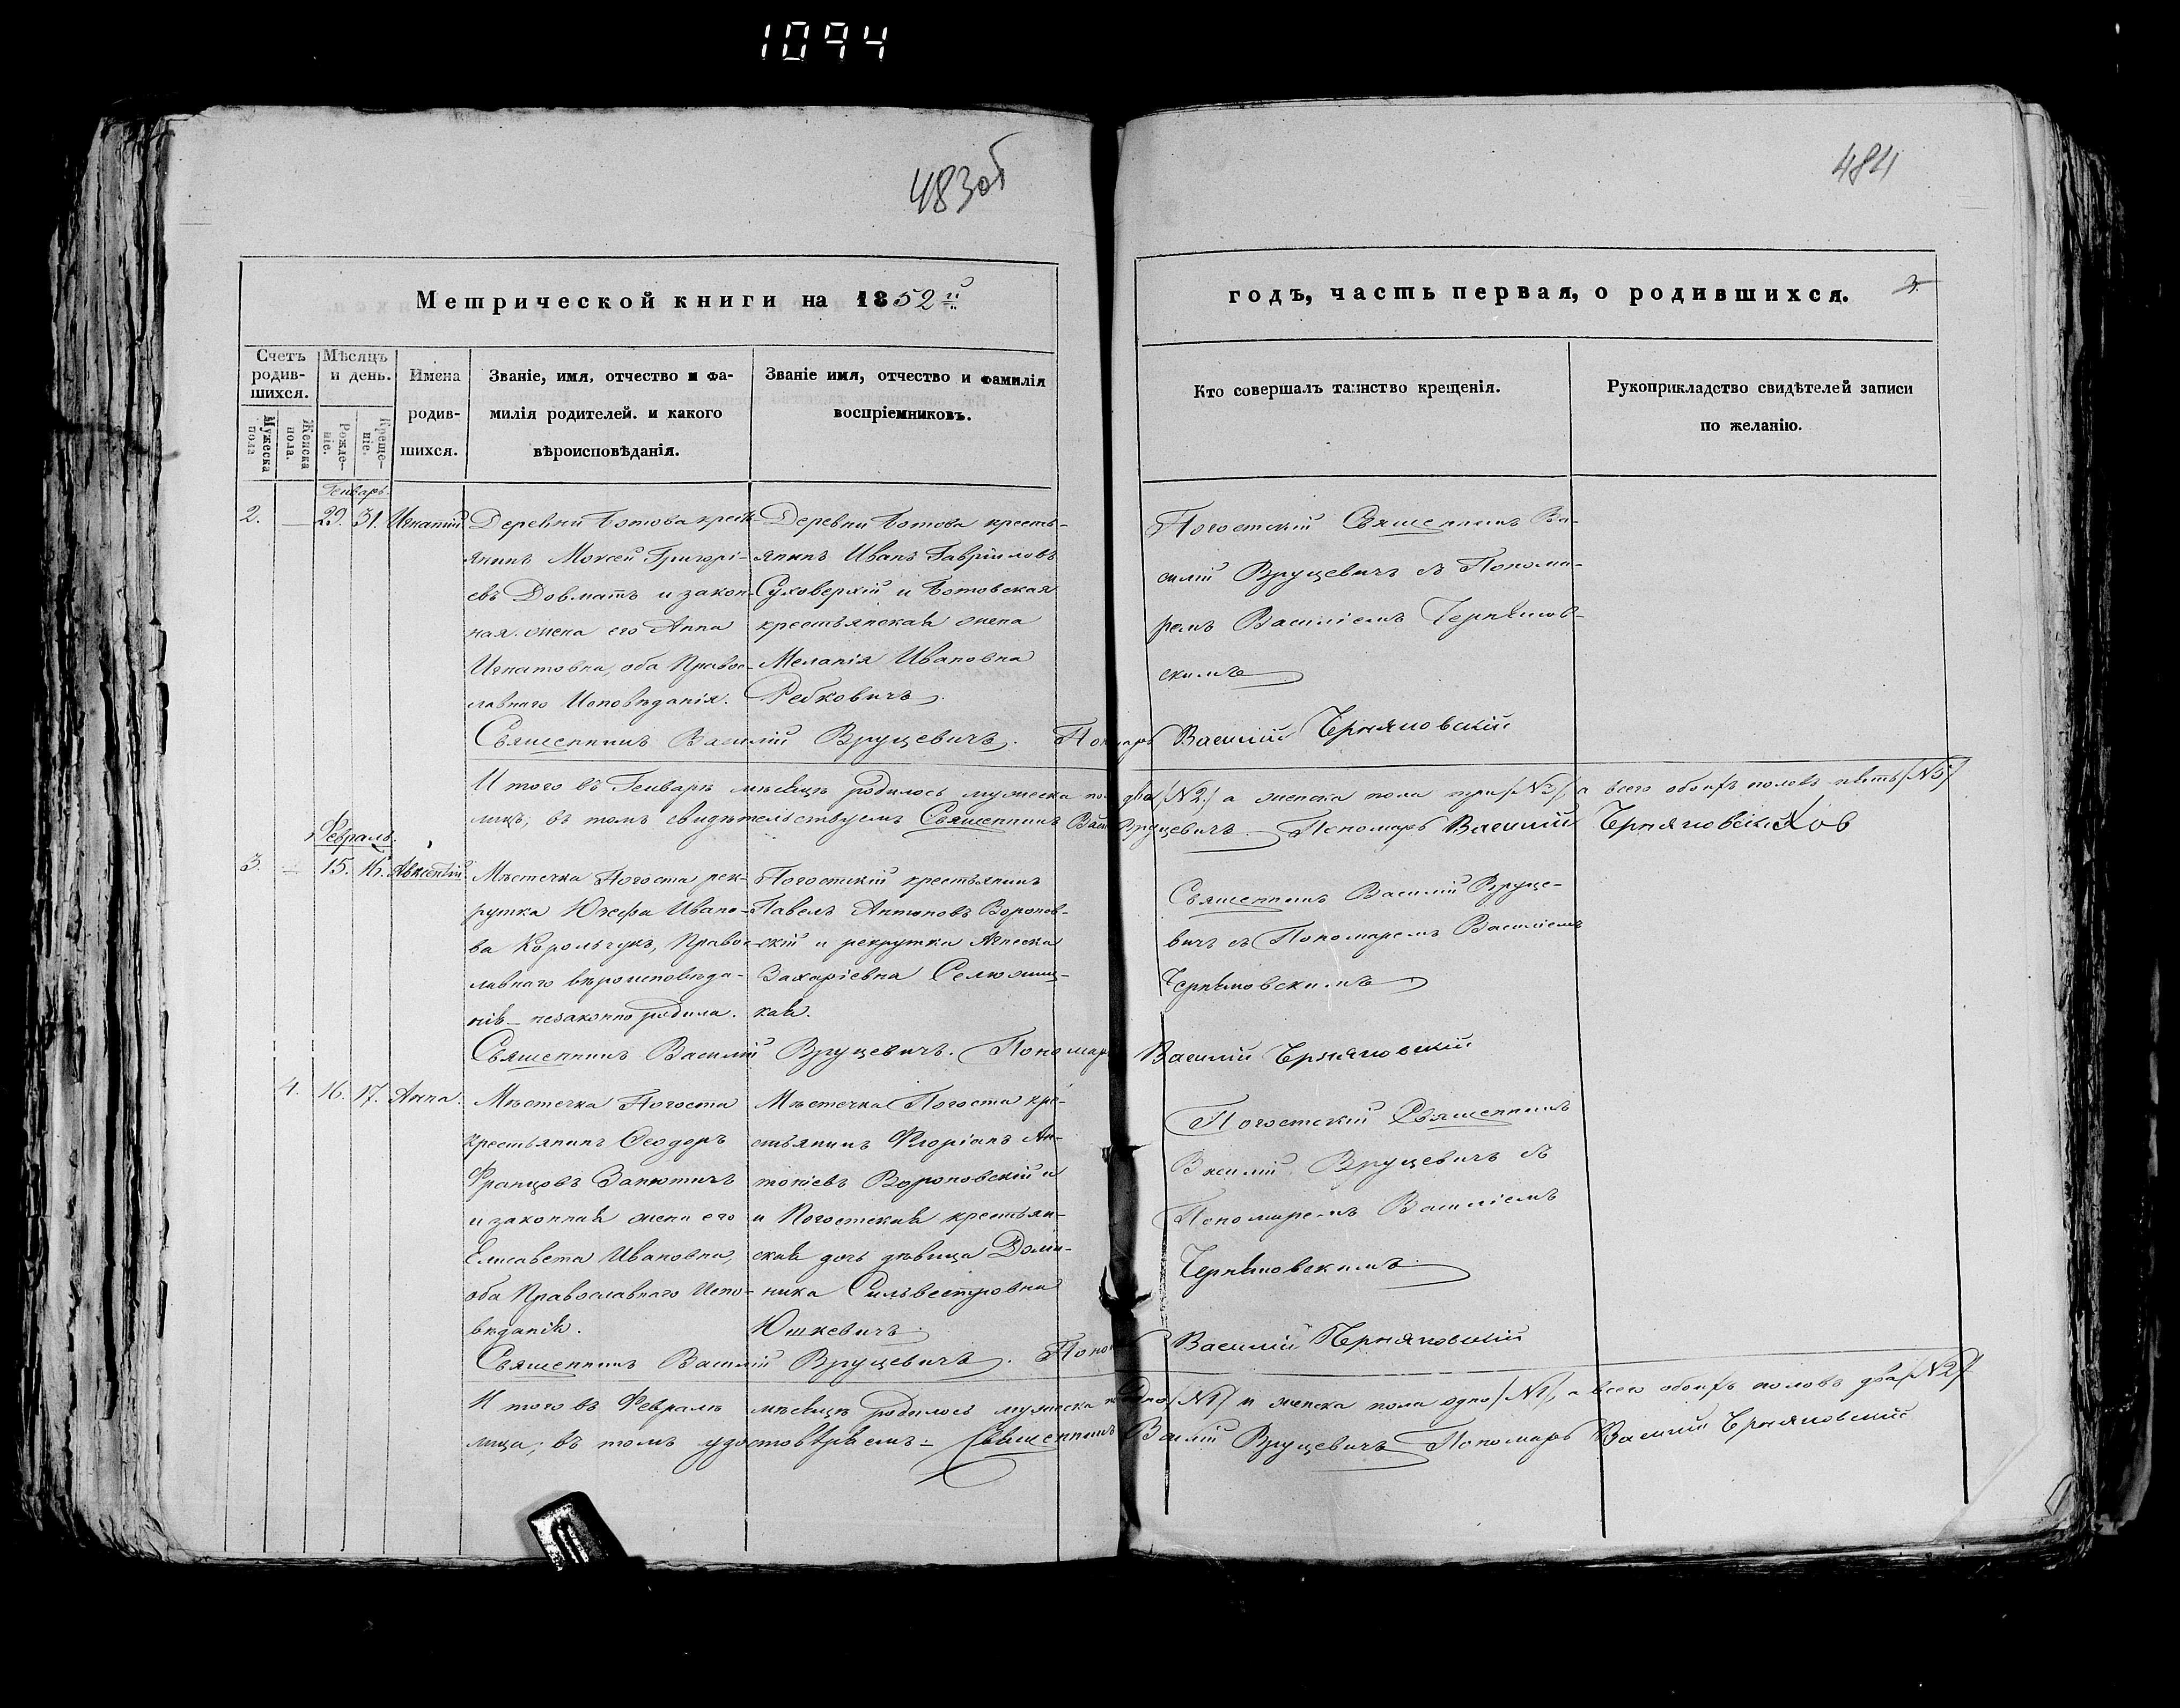 1094
483об
484
Метрической книги на 1852й
годъ, часть первая, о родившихся.
3.
Счетъ родив-шихся.
Мѣсяцъ и день.
Имена родив-шихся.
Званіе, имя, отчество и фа-
милія родителей. и какого
вѣроисповѣданія.
Званіе имя, отчество и фамилія
воспріемниковъ.
Кто совершалъ таинство крещенія.
Рукоприкладство свидѣтелей записи
по желанію.
Мужеска пола
Женска пола.
Рожде-ніе.
Креще-ніе.
Генварь.
2. — 29. 31. Игнатій
Деревни Ботова кресть-
янинъ Моисей Григорі-
евъ Довматъ и закон-
ная жена его Анна
Игнатовна, оба Правос-
лавнаго Исповѣданія.
Деревни Ботова кресть-
янинъ Иванъ Гавріиловъ
Суховерхій и Ботовская
крестьянская жена
Меланія Ивановна
Ребковичъ.
Погостскій Священникъ Ва-
силій Вруцевичъ съ Понома-
ремъ Василіемъ Черняков-
скимъ
Священникъ Василій Вруцевичъ. Пономарь Василій Черняковскій
И того въ Генварѣ мѣсяцѣ родилось мужеска пола два /№2/, а женска пола три /№3/, а всего обоихъ половъ пять /№5/
лицъ; въ томъ свидѣтельствуемъ Священникъ Василій Вруцевичъ. Пономарь Василій
Февраль.
3. — 15. 16. Авксентій
Мѣстечка Погоста рек-
рутка Юзефа Ивано-
ва Корольчукъ, Правос-
лавнаго вѣроисповѣда-
нія — незаконно родила.
Погостскій крестьянинъ
Павелъ Антоновъ Воронов-
скій и рекрутка Агнеска
Захаріевна
кая.
Священникъ Василій Вруце-
вичъ съ Пономаремъ Василіемъ
Черняковскимъ
Священникъ Василій Вруцевичъ. Пономарь Василій Черняковскій
4. 16. 17. Анна.
Мѣстечка Погоста
крестьянинъ Ѳеодоръ
Францовъ Занютичъ
и законная жена его
Елисавета Ивановна,
оба Православнаго Испо-
вѣданія.
Мѣстечка Погоста кре-
стьянинъ Флоріанъ Ан-
тоніевъ Вороновскій и
и Погостская крестьян-
ская дочь дѣвица Доми-
ника Сильвестровна
Юшкевичъ.
Погостскій Священникъ
Василій Вруцевичъ съ
Пономаремъ Василіемъ
Черняковскимъ
Священникъ Василій Вруцевичъ. Пономарь Василій Черняковскій
И того въ Февралѣ мѣсяцѣ родилось мужеска пола одно /№1/ и женска пола одно /№1/, а всего обоихъ половъ два /№2/
лица; въ томъ удостовѣряемъ: Священникъ Василій Вруцевичъ Пономарь Василій Черняковскій